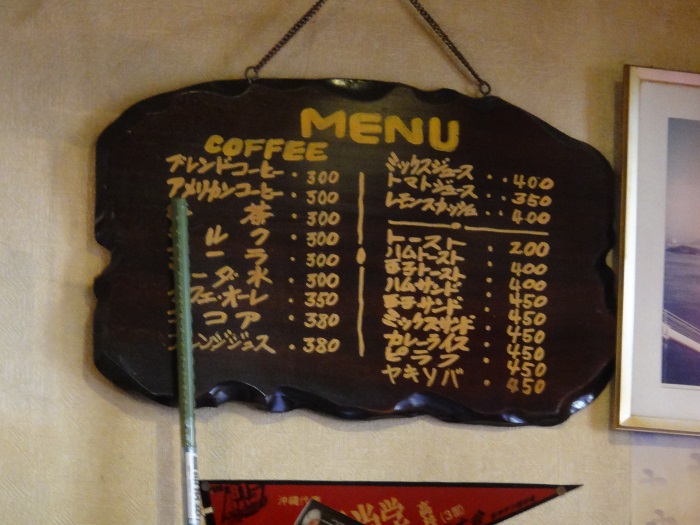 MENU
COFFEE
ブレンドコーヒー・300
アメリカンコーヒー・300
茶・300
ルク・300
ーラ・300
ーダ水・300
フェ・オーレ・350
コア・380
レンジジュース・380
ミックスジュース・・400
トマトジュース・・350
レモンスカッシュ・・400
トースト・200
ハムトースト・400
玉子トースト・400
ハムサンド・450
玉子サンド・450
ミックスサンド・450
カレーライス・450
ピラフ・450
ヤキソバ・450
沖縄代表